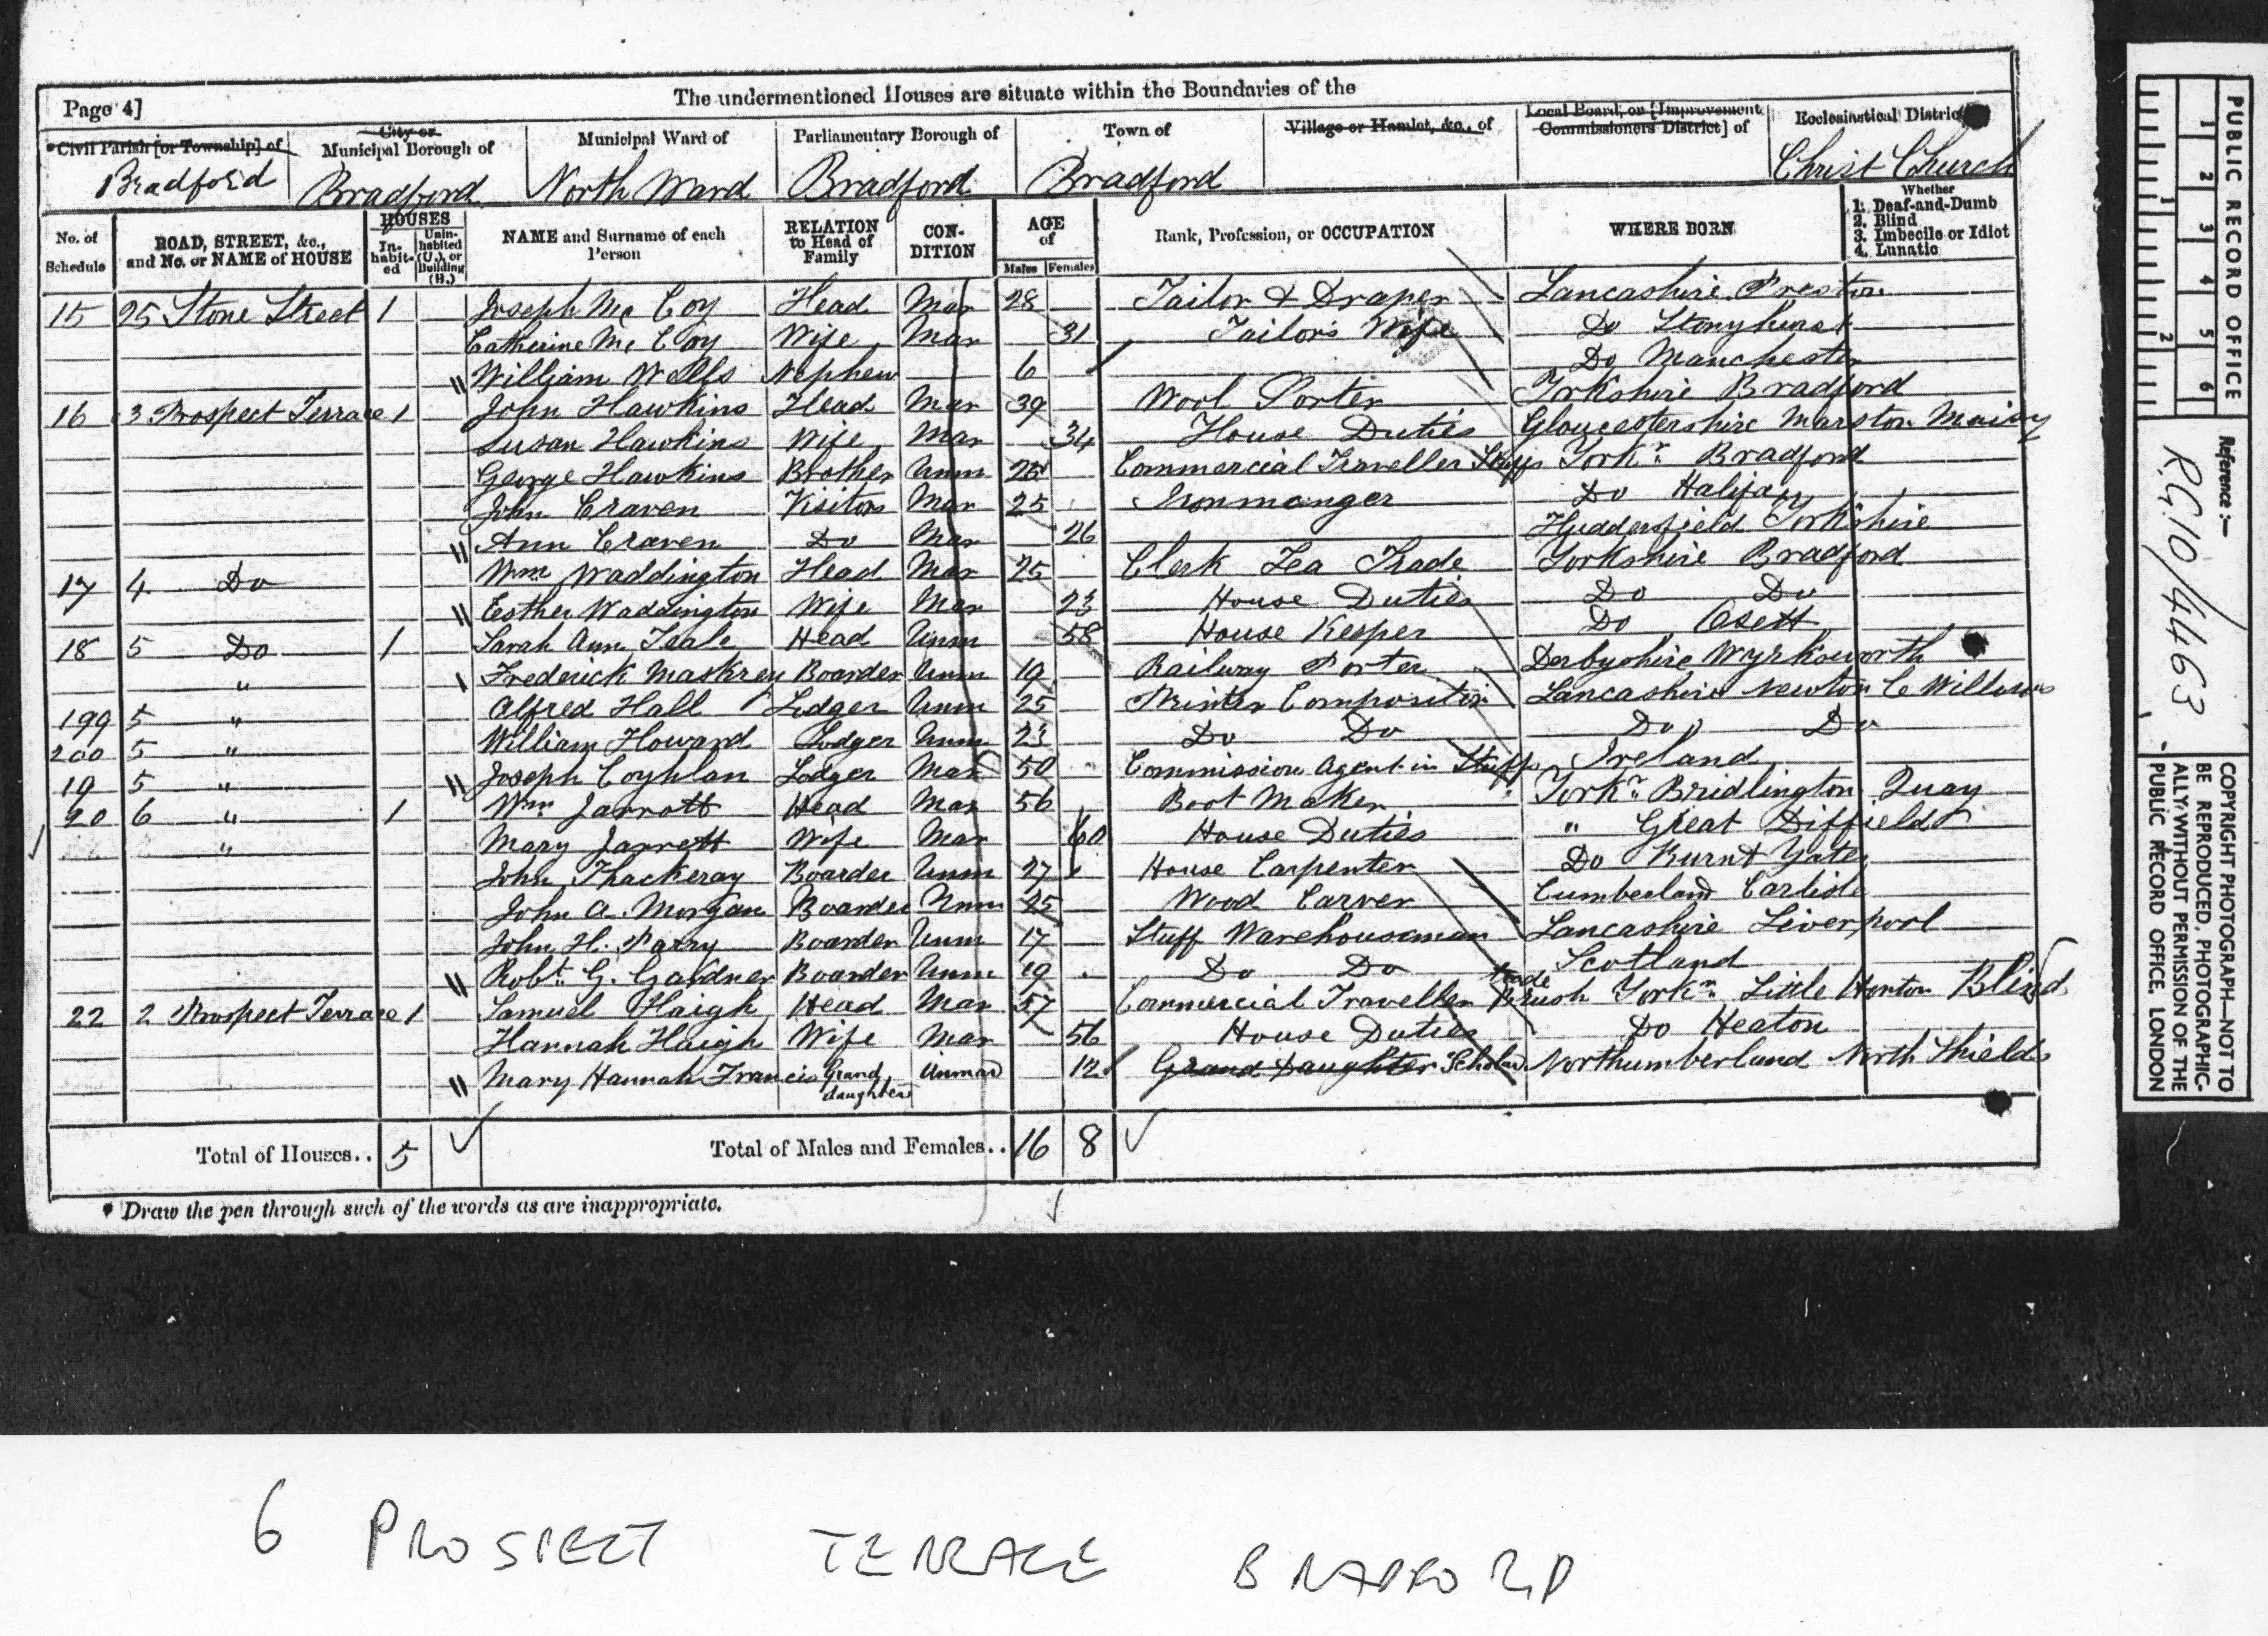 Page 4]
The undermentioned Houses are situate within the Boundaries of the
Civil Parish [or Township] of
City or Municipal Borough of
Municipal Ward of
Parliamentary Borough of
Town of
Village or Hamlet, &c., of
Local Board, or [Improvement Commissioners District] of
Ecclesiastical District
Bradford Bradford North Ward Bradford Bradford Christ Church
No. of Schedule
ROAD, STREET, &c., and No. or NAME of HOUSE
HOUSES
In-habit-ed
Unin-habited (U.), or Building (B.)
NAME and Surname of each Person
RELATION to Head of Family
CON-DITION
AGE of
Males Females
Rank, Profession, or OCCUPATION
WHERE BORN
Whether
1. Deaf-and-Dumb
2. Blind
3. Imbecile or Idiot
4. Lunatic
15 25 Stone Street 1 Joseph Mc Coy Head Mar 28 Tailor & Draper Lancashire Preston
Catherine Mc Coy Wife Mar 31 Tailor's Wife Do Stonyhurst
William Wells Nephew 6 Do Manchester
16 3 Prospect Terrace 1 John Hawkins Head Mar 39 Wool Sorter Yorkshire Bradford
Susan Hawkins Wife Mar 34 House Duties Gloucestershire Marston Maisy
George Hawkins Brother Unm 25 Commercial Traveller Stuffs Yorkr. Bradford
John Craven Visitors Mar 25 Ironmonger Do Halifax
Ann Craven Do Mar 26 Huddersfield Yorkshire
17 4 Do Wm Waddington Head Mar 25 Clerk Tea Trade Yorkshire Bradford
Eesther Waddington Wife Mar 23 House Duties Do Do
18 5 Do 1 Sarah Ann Teale Head Unm 58 House Keeper Do Osett
" Frederick Maskrey Boarder Unm 19 Railway Porter Derbyshire Wyrksworth
199 5 " Alfred Hall Lodger Unm 25 Printer Compositor Lancashire Newton Le Willows
200 5 " William Howard Lodger Unm 23 Do Do Do Do
19 5 " Joseph Coyhlan Lodger Mar 50 Commission Agent in Stuffs Ireland
20 6 " 1 Wm Jarrott Head Mar 56 Boot Maker Yorkr. Bridlington Quay
" Mary Jarrett Wife Mar 60 House Duties " Great Diffield
John Thackeray Boarder Unm 27 House Carpenter Do Burnt Yates
John A. Morgan Boarder Unm 25 Wood Carver Cumberland Carlisle
John H. Parry Boarder Unm 17 Stuff Warehouseman Lancashire Liverpool
Robt. G. Gardner Boarder Unm 19 Do Do Scotland
22 2 Prospect Terrace 1 Samuel Haigh Head Mar 57 Commercial Traveller Brush trade Yorkr. Little Horton Blind
Hannah Haigh Wife Mar 56 House Duties Do Heaton
Mary Hannah Francis Grand daughter Unmar 12 Grand Daughter Scholar Northumberland North Shields
Total of Houses.. 5 Total of Males and Females.. 16 8
* Draw the pen through such of the words as are inappropriate.
PUBLIC RECORD OFFICE
1 2 3 4 5 6
1 2
Reference :—
R.G. 10/4463
COPYRIGHT PHOTOGRAPH—NOT TO BE REPRODUCED, PHOTOGRAPHIC-ALLY WITHOUT PERMISSION OF THE PUBLIC RECORD OFFICE, LONDON
6 PROSPECT TERRACE BRADFORD